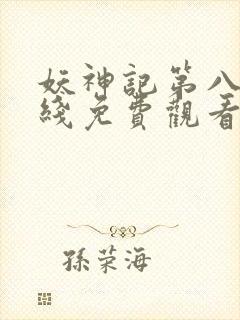 妖神記第八
綫免費觀看
孫荣海